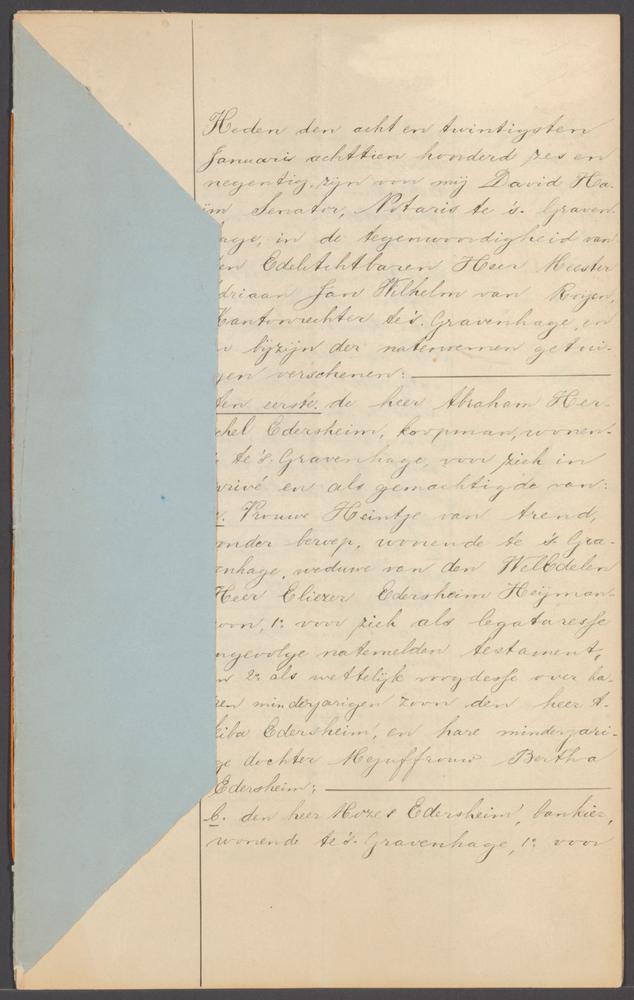 Heden den acht en twintigsten
Januari achttien honderd zes en
negentig, zijn voor mij David Ha-
im Senator, Notaris te 's Graven-
hage, in de tegenwoordigheid van
en EdelAchtbaren Heer Meester
driaan Jan Wilhelm van Royen,
Kantonrechter te 's Gravenhage, en
n bijzijn der natenoemen getui-
gen verschenen:
ten eerste. de heer Abraham Her-
chel Edersheim, koopman, wonen-
te 's Gravenhage, voor zich in
privé en als gemachtigde van:
a. Vrouwe Heintje van Arend,
onder beroep, wonende te 's Gra-
enhage, weduwe van den WelEdelen
Heer Eliezer Edersheim Heijman-
oon, 1o voor zich als legataresse
ngevolge natemelden testament,
n 2o als wettelijk voogdesse over ha-
ren minderjarigen zoon den heer A-
kiba Edersheim, en hare minderjari-
ge dochter Mejuffrouw Bertha
Edersheim;
b. den heer Mozes Edersheim, bankier,
wonende te 's Gravenhage, 1o voor